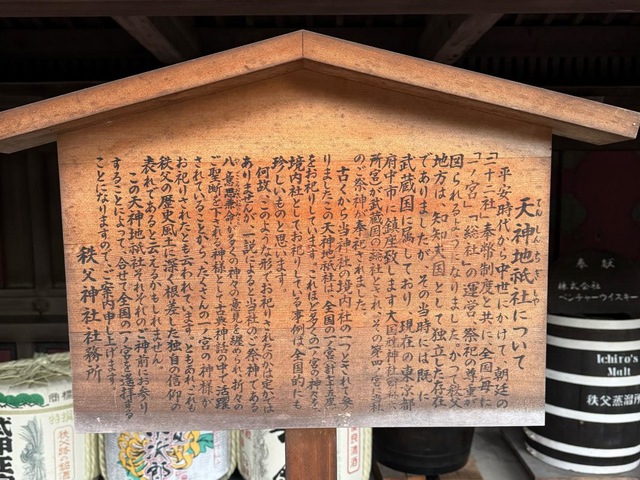 天神地祇社について
てんしんちぎしゃ
平安時代から中世にかけて、朝廷の
「二十二社」奉幣制度と共に、全国毎に
「一ノ宮」「総社」の運営、祭祀の尊重が
図られるようになりました。かつて秩父
地方は「知知夫国」として独立した存在
でありましたが、その当時には既に
武蔵国に属しており、現在の東京都
府中市に鎮座致します大国魂神社
所宮が武蔵国の総社とされ、その第四宮に当社
のご祭神が奉祀されました。
古くから当神社の境内社の一つとされて参
りましたこの天神地祇社は、全国の一宮計七五座
をお祀りしています。これほど多くの一ノ宮の神々を、
境内社としてお祀りしている事例は全国的にも
珍しいものと思われます。
何故、このような形でお祀りされたのかは定かでは
ありませんが、一説によると当社のご祭神である
八意思兼命が多くの神々の意見を纏められ、折々の
ご聖断を下される神様として古典神話の中で活躍
されていることから、たくさんの一ノ宮の神様が
お祀りされたとも云われています。ともあれ、これも
秩父の歴史風土に深く根差した独自の信仰の
表れであると云えるかもしれません。
この天神地祇社それぞれのご神前にお参り
することによって、合せて全国の一ノ宮を遥拝する
ことになりますので、ご案内申し上げます。
秩父神社社務所
奉献
株式会社
ベンチャーウイスキー
Ichiro's
Malt
秩父蒸溜所